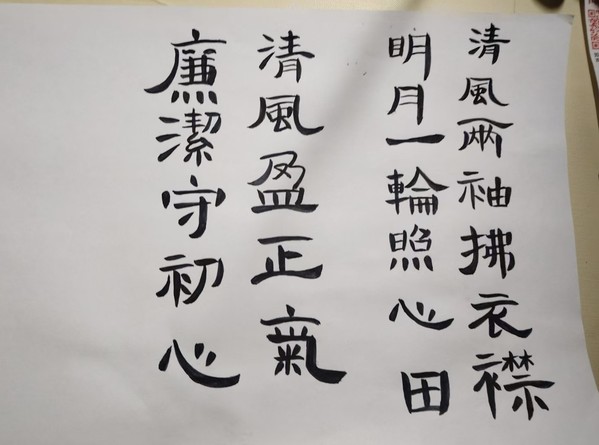 清風兩袖拂衣襟
明月一輪照心田
清風盈正氣
廉潔守初心